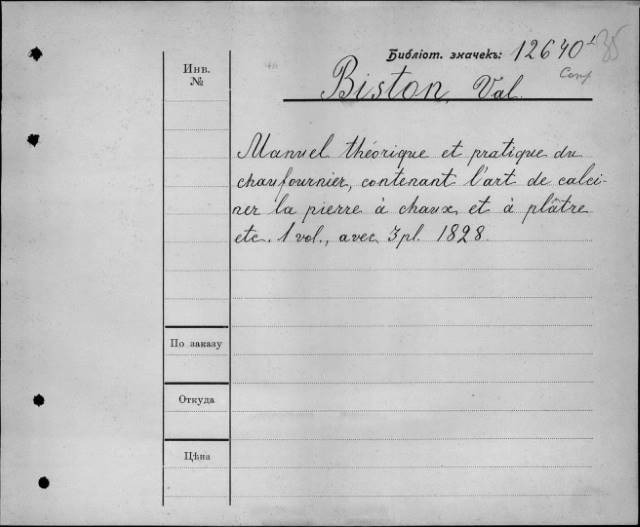 Библіот. значекъ: 12640¹
35
Инв.
№
Biston, Val.
Manuel théorique et pratique du
chaufournier, contenant l'art de calci-
ner la pierre à chaux et à plâtre
etc. 1 vol., avec 3 pl. 1828.
По заказу
Откуда
Цѣна